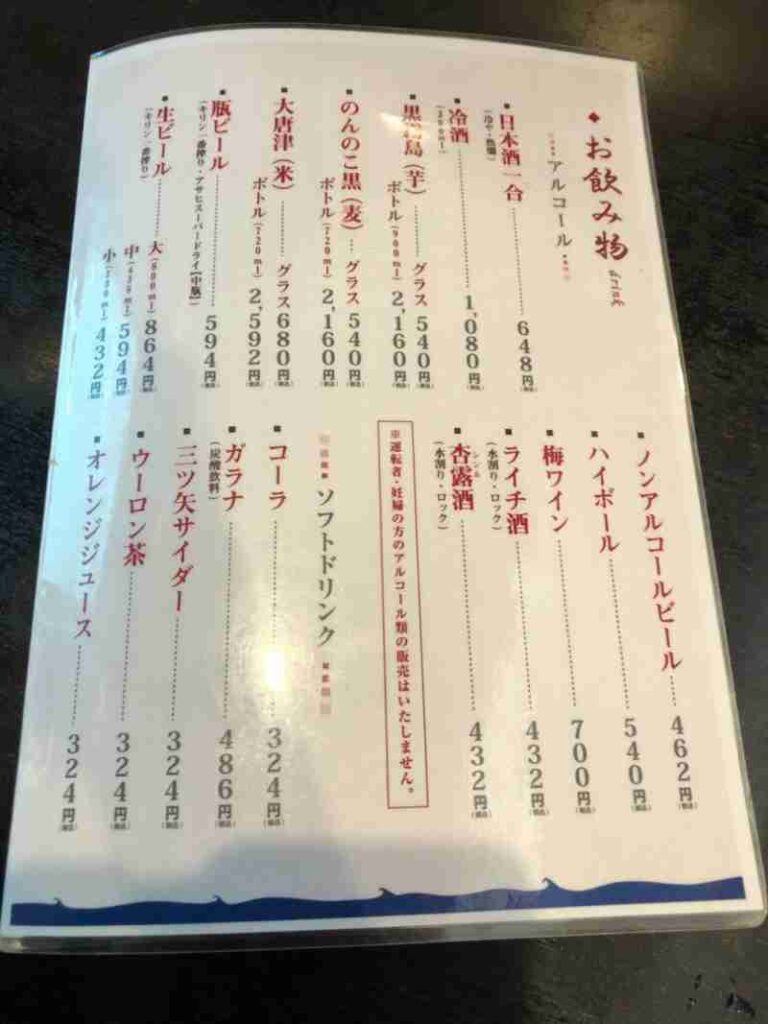 お飲み物 drink
アルコール
日本酒一合 648円(税込)
(冷や・熱燗)
冷酒 1,080円(税込)
(300ml)
黒 島(芋) グラス 540円(税込)
ボトル(900ml) 2,160円(税込)
のんのこ黒(麦) グラス 540円(税込)
ボトル(720ml) 2,160円(税込)
大唐津(米) グラス 680円(税込)
ボトル(720ml) 2,592円(税込)
瓶ビール 594円(税込)
(キリン一番搾り・アサヒスーパードライ【中瓶】)
生ビール 大(800ml) 864円(税込)
(キリン一番搾り)
中(435ml) 594円(税込)
小 432円(税込)
ノンアルコールビール 462円(税込)
ハイボール 540円(税込)
梅ワイン 700円(税込)
ライチ酒 432円(税込)
(水割り・ロック)
杏露酒 432円(税込)
シンル
(水割り・ロック)
※運転者・妊婦の方のアルコール類の販売はいたしません。
ソフトドリンク
コーラ 324円(税込)
ガラナ 486円(税込)
(炭酸飲料)
三ツ矢サイダー 324円(税込)
ウーロン茶 324円(税込)
オレンジジュース 324円(税込)